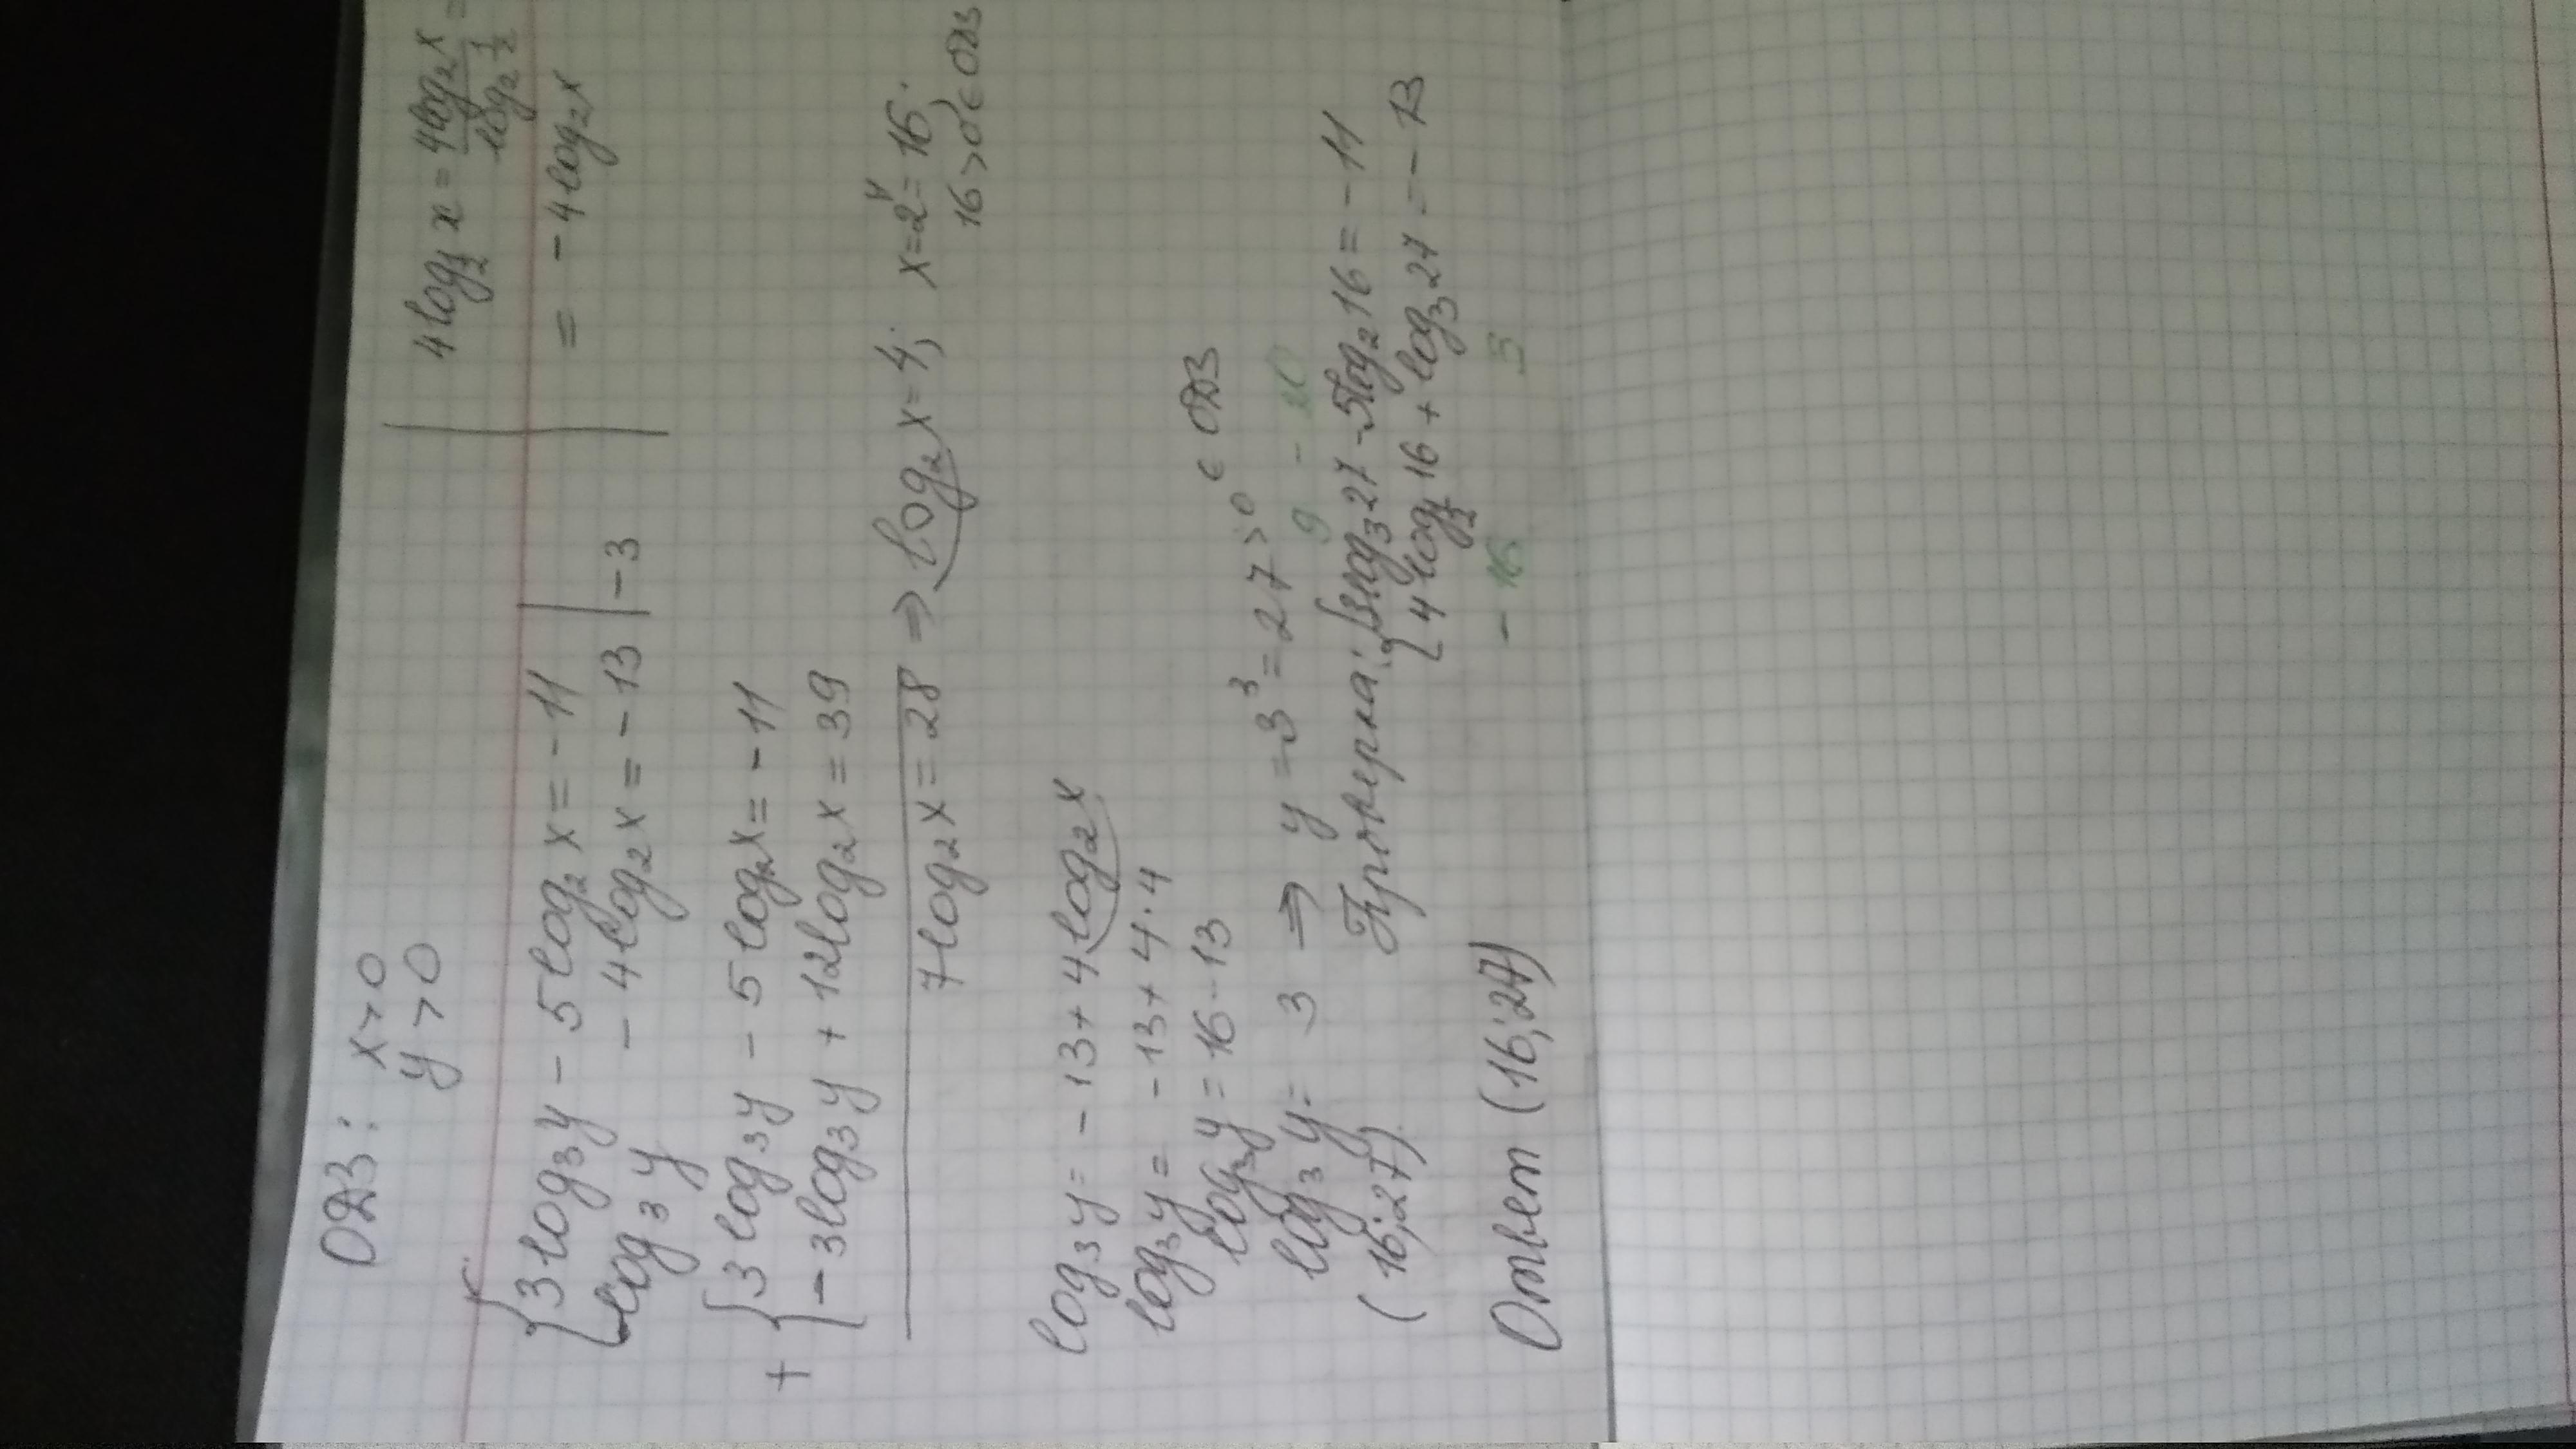 ОДЗ: x>0
y>0
4log½ x = 4log₂x / log₂ ½ =
= -4log₂x
{ 3log₃y - 5log₂x = -11
log₃y - 4log₂x = -13 | -3
+ { 3log₃y - 5log₂x = -11
-3log₃y + 12log₂x = 39
7log₂x = 28 ⇒ log₂x = 4; x = 2⁴ = 16;
16 > 0 ∈ ОДЗ
log₃y = -13 + 4log₂x
log₃y = -13 + 4·4
log₃y = 16 - 13
log₃y = 3 ⇒ y = 3³ = 27 > 0 ∈ ОДЗ
(16;27)
9 - 20
Проверка: { 3log₃27 - 5log₂16 = -11
4log½16 + log₃27 = -13
-16 3
Ответ (16;27)